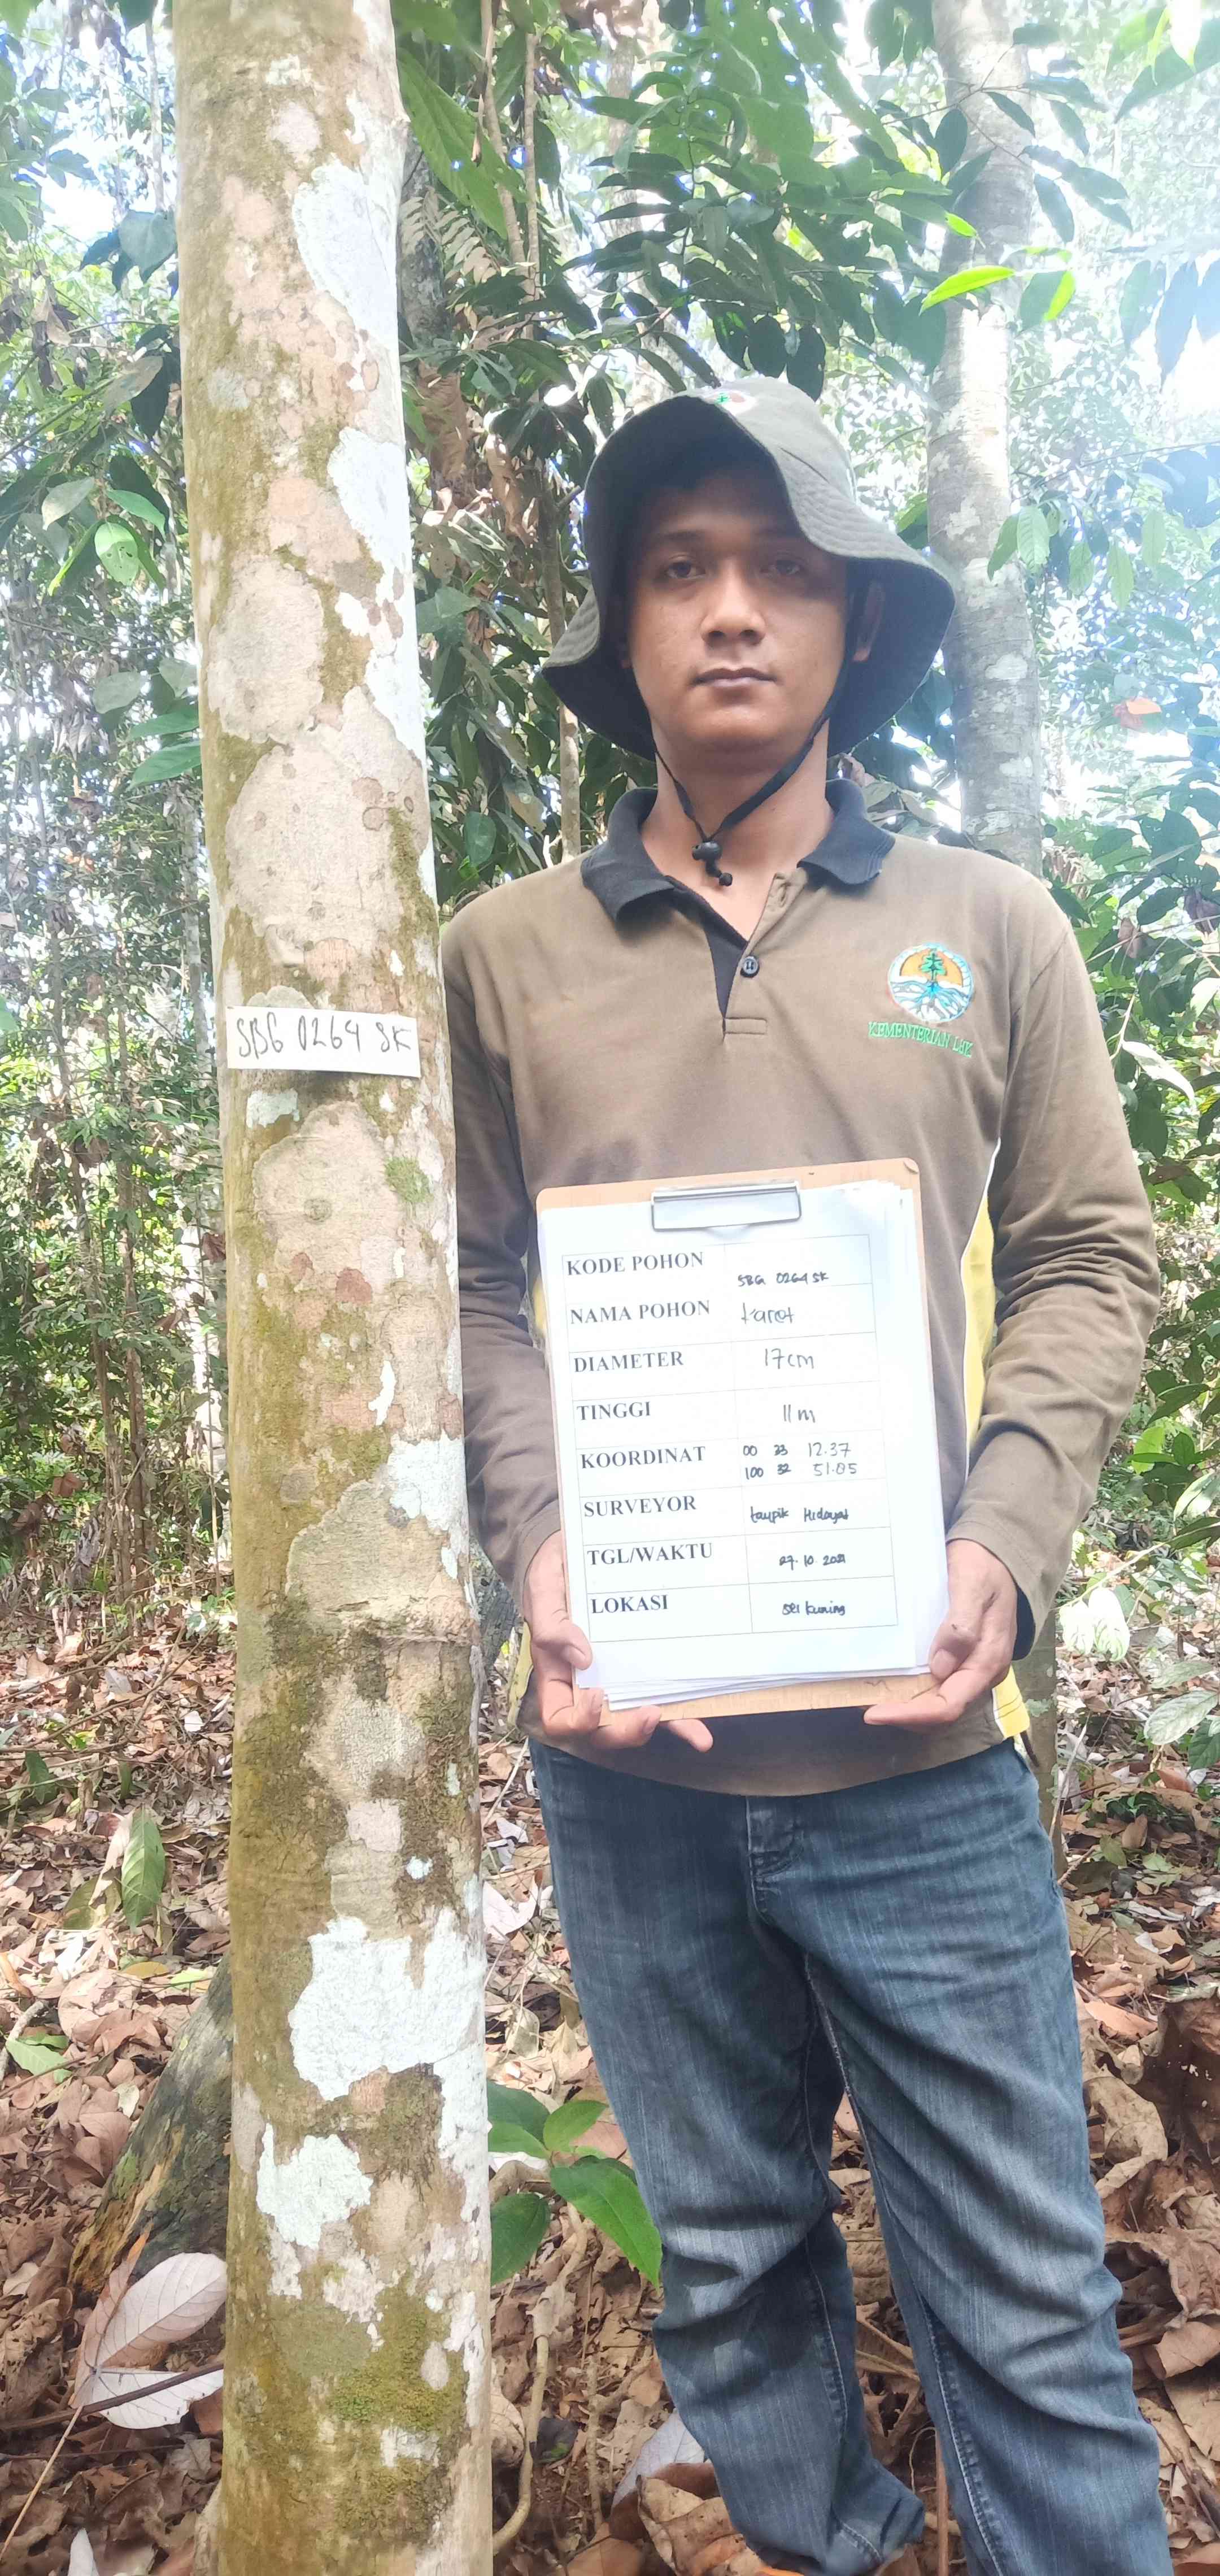 SBG 0264 SK
KEMENTERIAN LHK
KODE POHON SBG 0264 SK
NAMA POHON karet
DIAMETER 17cm
TINGGI 11m
KOORDINAT 00 23 12.37
100 32 51.05
SURVEYOR taupik Hidayat
TGL/WAKTU 27.10.2021
LOKASI sei kuning